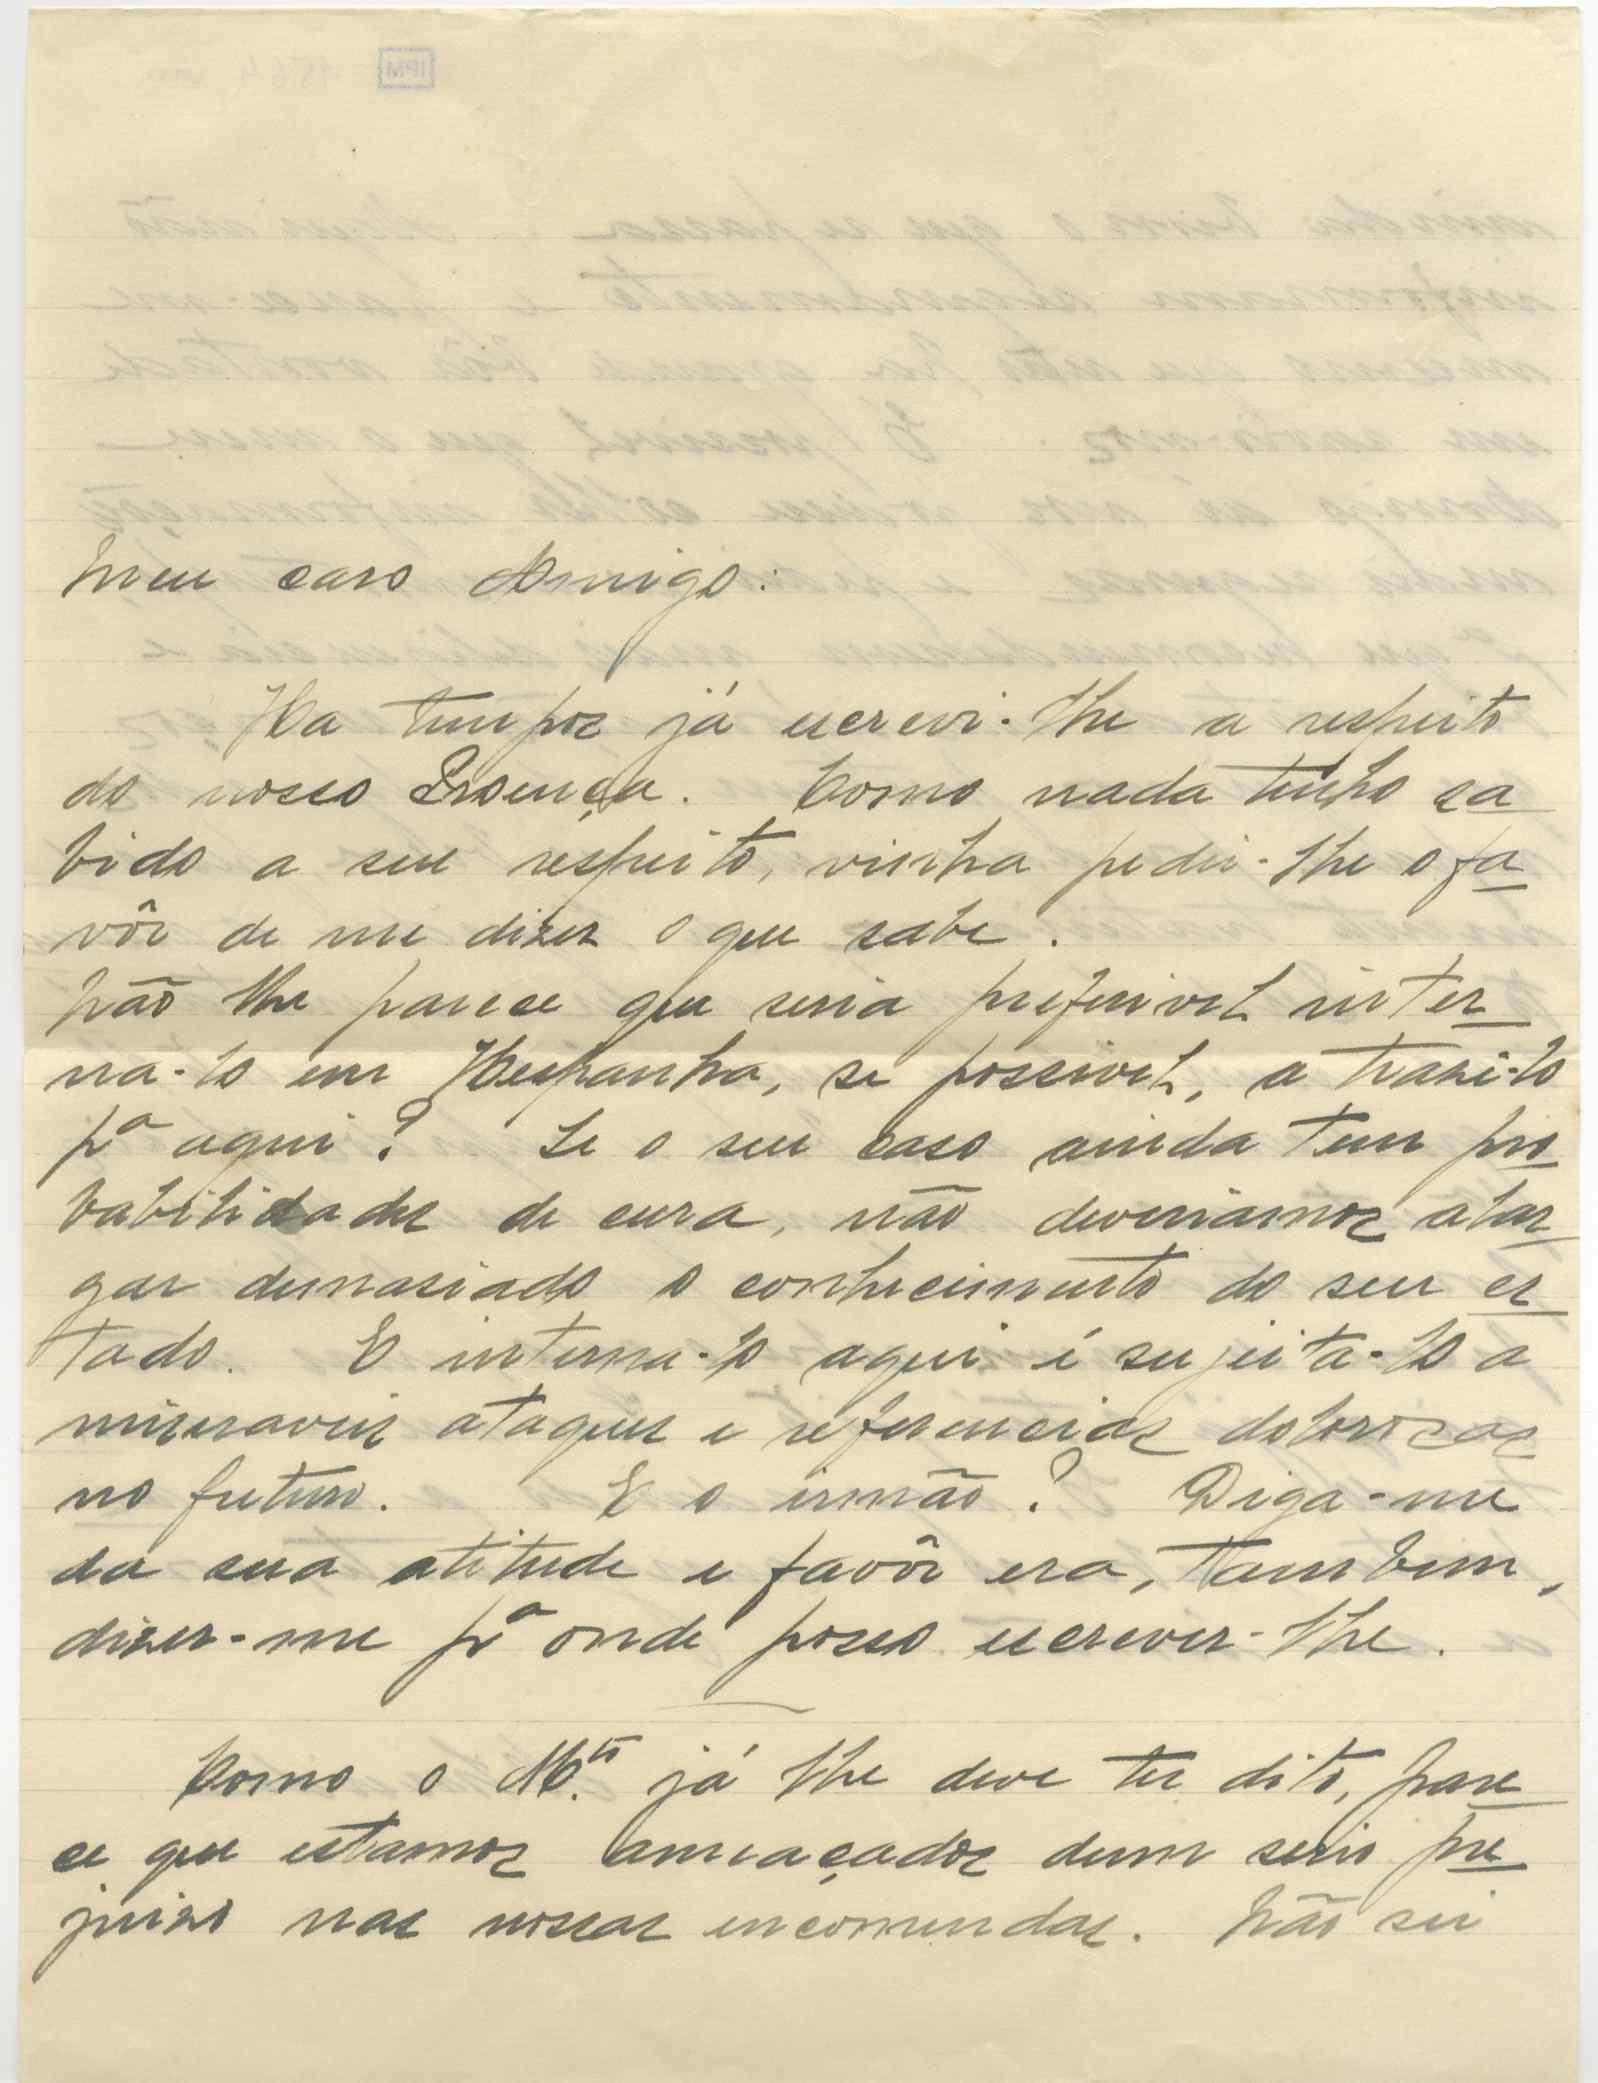 Meu caro Amigo:
Ha tempos já escrevi-lhe a respeito
do nosso Proença. Como nada tenho sa
bido a seu respeito, vinha pedir-lhe o fa
vôr de me dizer o que sabe.
Não lhe parece que seria preferivel inter
na-lo em Hespanha, se possivel, a traze-lo
pª aqui? Se o seu caso ainda tem pro
babilidades de cura, não deveriamos alar
gar demasiado o conhecimento do seu es
tado. E interna-lo aqui é sujeita-lo a
miseraveis ataques e referencias dolorosas
no futuro. E o irmão? Diga-me
da sua atitude e favôr era, tambem,
dizer-me pª onde posso escrever-lhe.
Como o já lhe deve ter dito, pare
ce que estamos ameaçados dum serio pre
juizo nas nossas encomendas. Não sei